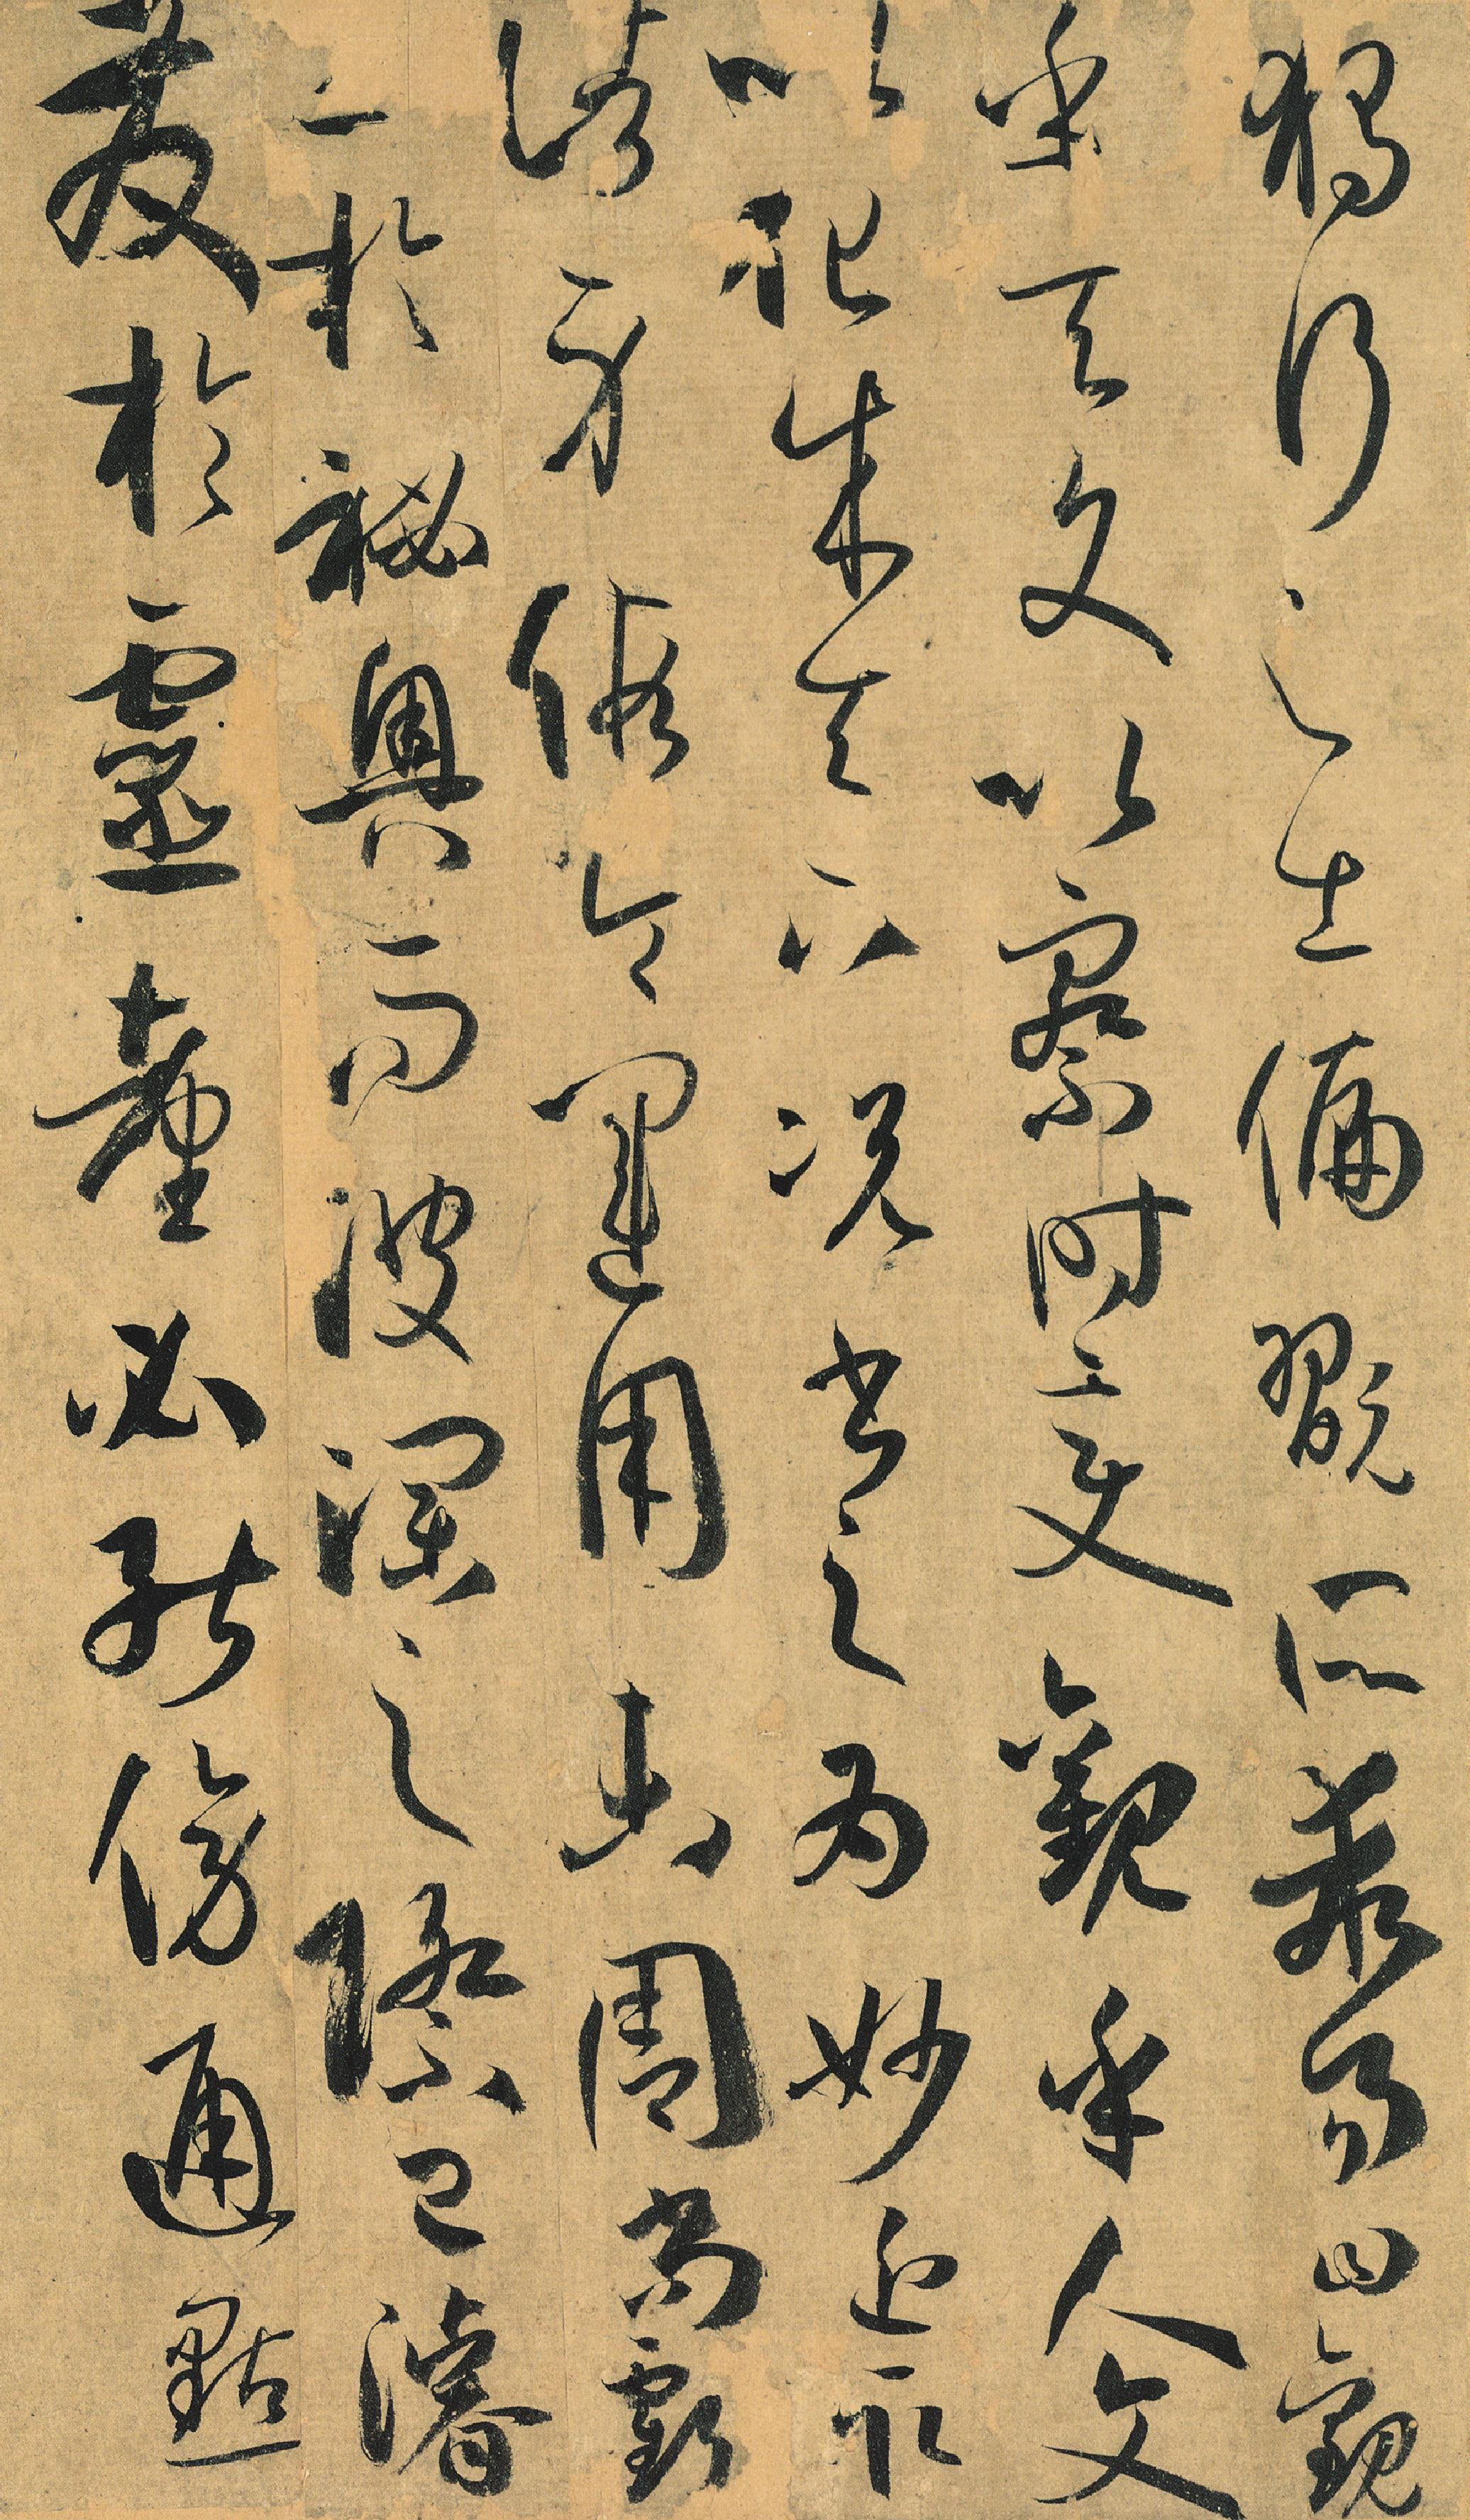 獨行之士偏翫所乖易曰觀
乎天文以察時變觀乎人文
以化成天下況書之為妙近取
諸身假令運用未周尚虧
工於祕奧而波瀾之際已濬
發於靈臺必能傍通點